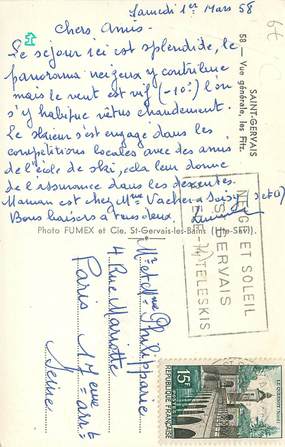 Samedi 1er Mars 58
Chers Amis -
Le séjour ici est splendide, le
panorama neigeux y contribue
mais le vent est vif (-10°) l'on
s'y habitue vêtus chaudement.
Le skieur s'est engagé dans les
compétitions locales avec des amis
de l'école de ski, cela leur donne
de l'assurance dans les descentes.
Maman est chez Mme Vacher à
Bons baisers à tous deux.
67
SAINT-GERVAIS
58 — Vue générale, les Fitz.
Photo FUMEX et Cie, St-Gervais-les-Bains (Hte-Sav.).
NEIGE ET SOLEIL
ST GERVAIS
TELESKIS
Mr et Mme Philipparie
4 Rue Mariotte
Paris 17eme arrt
Seine
15F
REPUBLIQUE FRANÇAISE
POSTES
LE QUESNOY